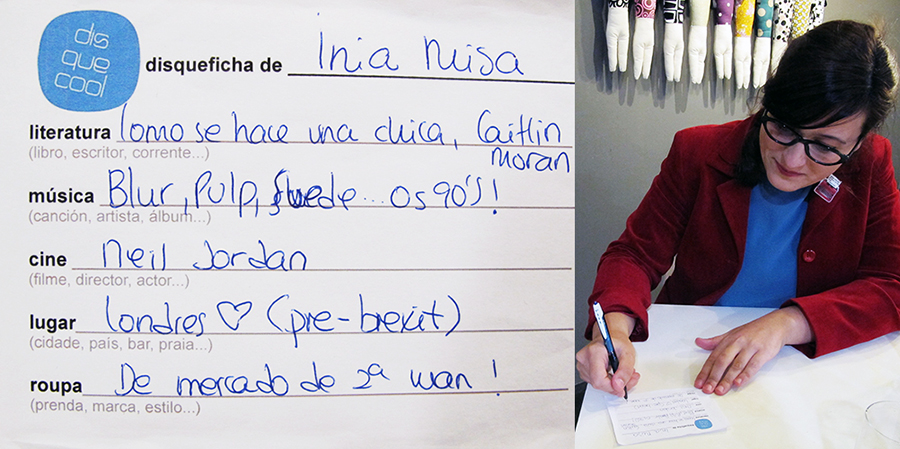 dis
que
cool
disqueficha de Iria Misa
literatura Como se hace una chica, Caitlin
Moran
(libro, escritor, corrente...)
música Blur, Pulp, Suede... os 90's!
(canción, artista, álbum...)
cine Neil Jordan
(filme, director, actor...)
lugar Londres ♡ (pre-brexit)
(cidade, país, bar, praia...)
roupa De mercado de 2ª man!
(prenda, marca, estilo...)